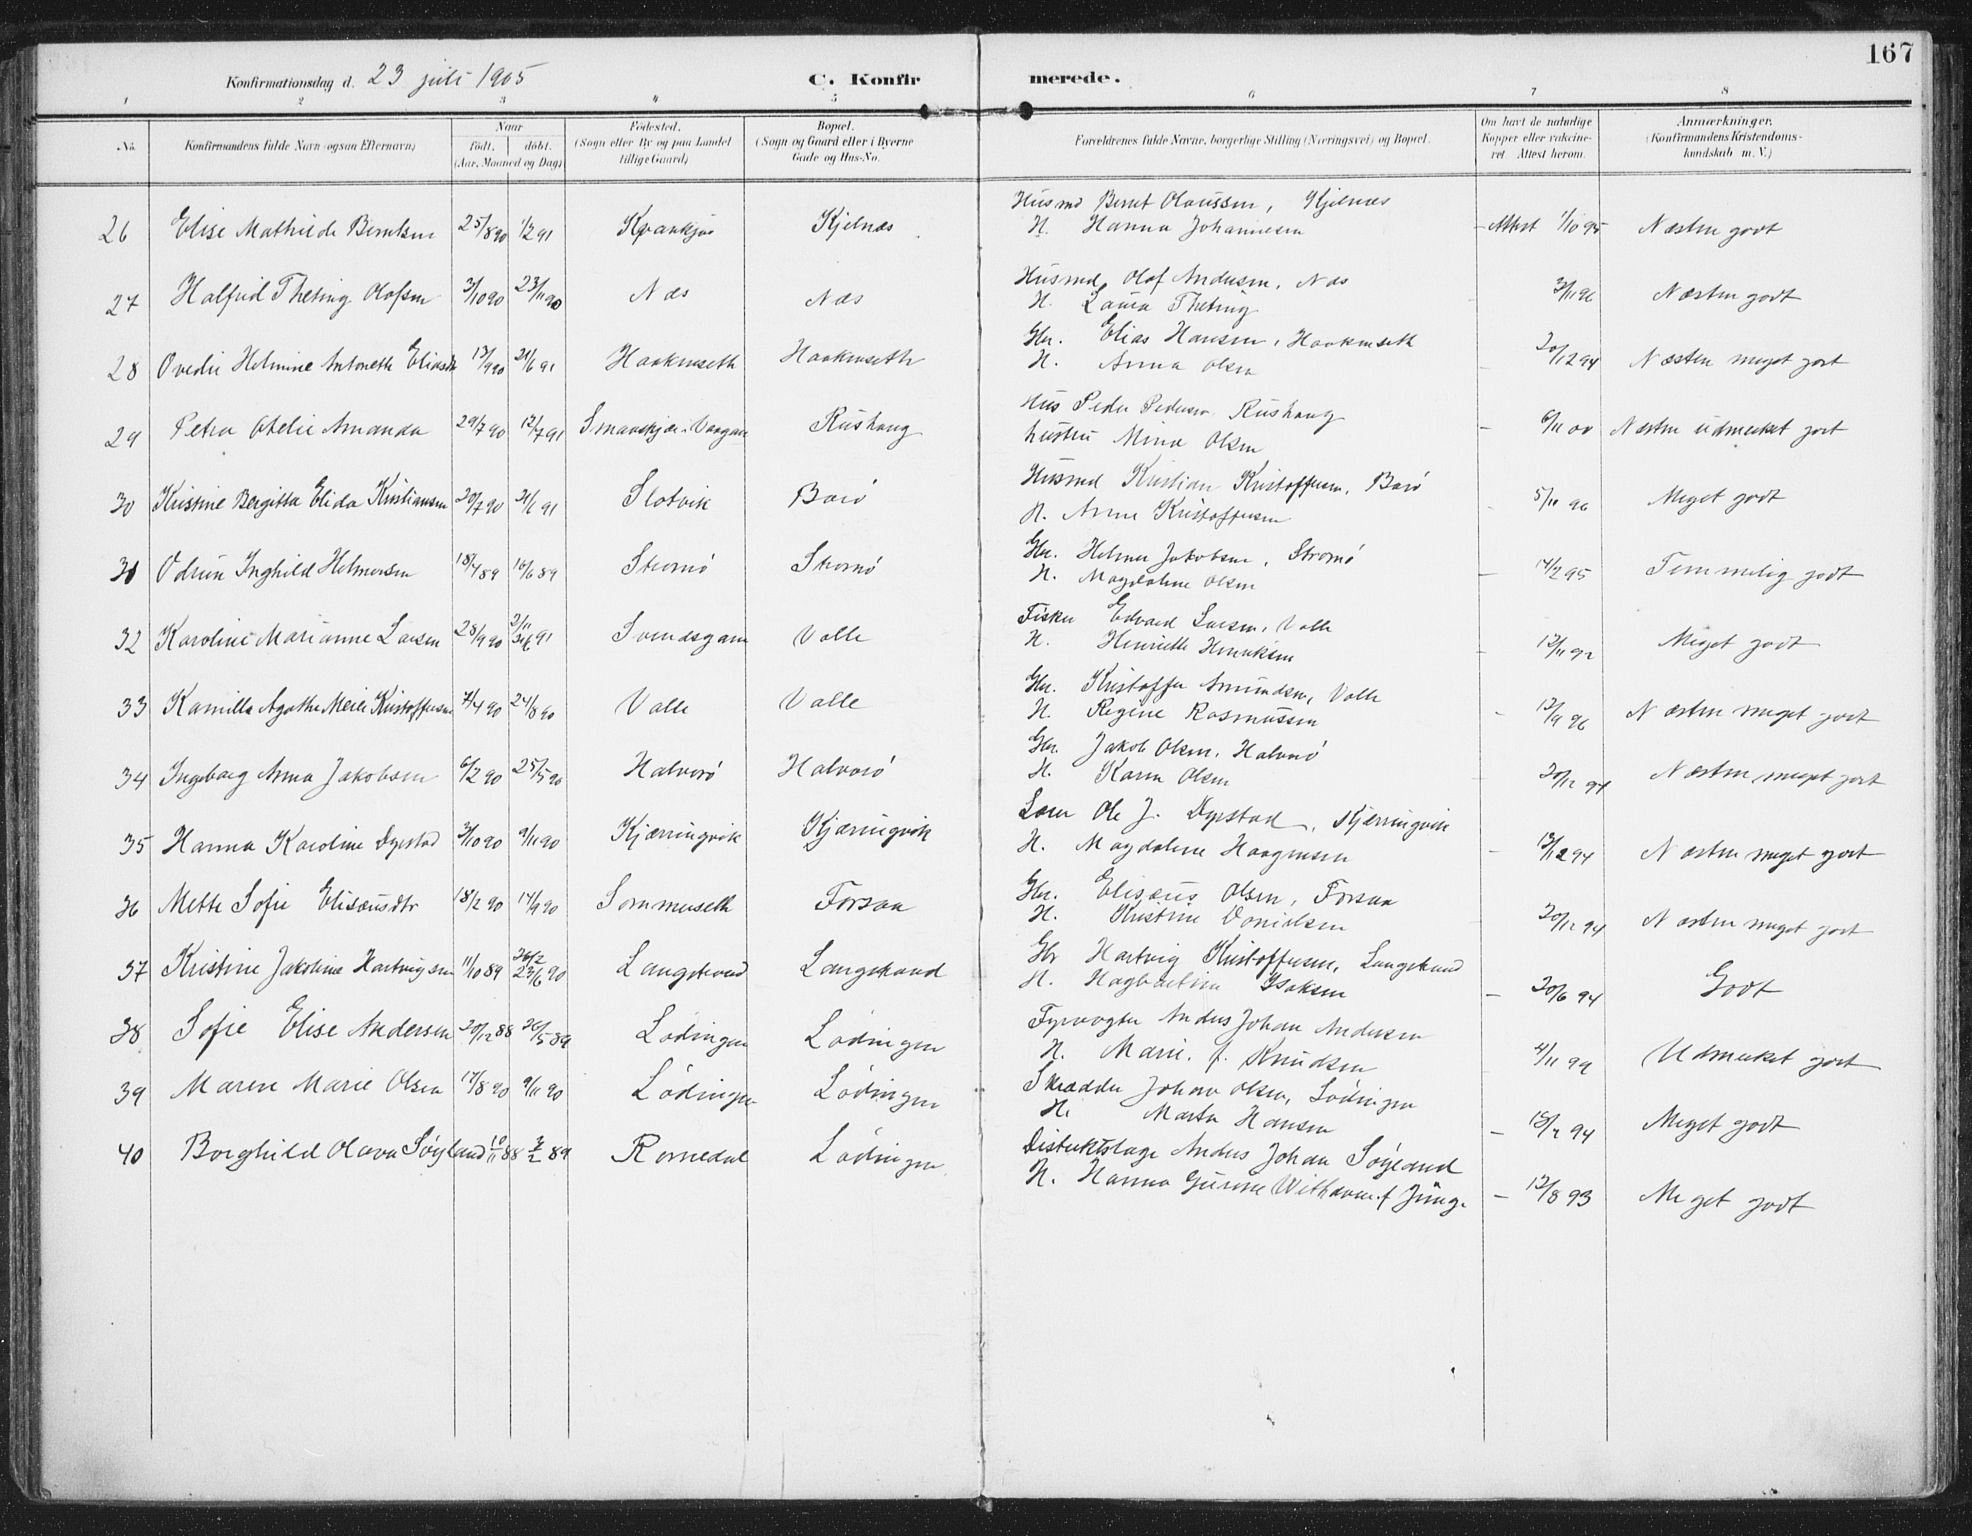 167
Konfirmationsdag d. 23 juli 1905 C. Konfirmerede.
1 2 3 4 5 6 7 8
No. Konfirmandens fulde Navn (ogsaa Efternavn) Naar født. døbt. (Aar, Maaned og Dag) Fødested. (Sogn eller By og paa Landet tillige Gaard) Bopæl. (Sogn og Gaard eller i Byerne Gade og Hus-No. Forældrenes fulde Navne, borgerlige Stilling (Næringsvei) og Bopæl. Om havt de naturlige Kopper eller vakcineret. Attest herom. Anmærkninger. (Konfirmandens Kristendomskundskab m. V.)
26 Elise Mathilde Berntsen 25/8 90 1/2 91 Kvankjos Kjelnæs Husmd Bernt Olaussen, Kjelnæs
H. Hanna Johannesen - Attest 1/10 95 Næsten godt
27 Halfrid Theting Olofsen 3/10 90 23/11 90 Næs Næs Husmd Olof Andersen, Næs
H. Laura Theting 3/11 96 Næsten godt
28 Ovedie Helmine Antonette Eliasdr 13/9 90 21/6 91 Haakenseth Haakenseth Gbr. Elias Hansen, Haakenseth
H. Anna Olsen - 20/12 94 Næsten meget godt
29 Petra Otelie Amanda 29/7 90 12/7 91 Rushaug Hus Peder Pedersen Rushaug
hustru Mina Olsen - 6/11 00 Næsten udmerket godt
30 Kristine Bergitta Elida Kristiansen 20/7 90 21/6 91 Slotvik Barø Husmd Kristian Kristoffersen, Barø
H. Anne Kristoffersen - 5/11 96 Meget godt
31 Odrun Inghild Helmersen 18/4 89 16/6 89 Stromø Stromø Gbr. Helmer Jakobsen, Stromø
H. Magdalene Olsen - 14/2 95 Temmelig godt
32 Karoline Marianne Larsen 28/9 90 2/11 21/6 91 Svendsgam Valle Fisker Edvard Larsen, Valle
H. Henriette Henriksen - 12/11 92 Meget godt
33 Kamilla Agathe Meier Kristoffersen 7/4 90 24/8 90 Valle Valle Gbr. Kristoffer Amundsen, Valle
H. Regine Rasmussen - 12/9 96 Næsten meget godt
34 Ingeborg Anna Jakobsen 6/2 90 25/5 90 Halvarø Halvarø Gbr. Jakob Olsen, Halvarø
H. Karen Olsen - 20/12 94 Næsten meget godt
35 Hanna Karoline Dyrstad 3/10 90 9/11 90 Kjærringvik Kjæringvik Lærer Ole J. Dyrstad, Kjærringvik
H. Magdalene Haagensen - 13/12 94 Næsten meget godt
36 Mette Sofie Elisæusdtr 18/2 90 14/9 90 Sommerseth Forsaa Gbr. Elisæus Olsen, Forsaa
H. Kristine Danielsen 20/12 94 Næsten meget godt
37 Kristine Jakobine Hartvigsen 11/10 89 26/2 23/6 90 Langstrand Langstrand Gbr Hartvig Kristoffersen, Langstrand
H. Hagbartine Isaksen - 20/6 94 Godt
38 Sofie Elise Andersen 20/12 88 26/5 89 Lødingen Lødingen Fyrvogter Anders Johan Andersen
H. Marie. f. Knudsen 4/11 99 Udmerket godt
39 Maren Marie Olsen 17/8 90 9/11 90 Lødingen Lødingen Skrædder Johan Olsen, Lødingen
H. Marta Hansen - 18/2 94 Meget godt
40 Borghild Olava Søyland 10/11 88 3/2 89 Romedal Lødingen Distriktslæge Anders Johan Søyland
H. Hanna Gurine Withavne f Jüng. - 12/8 93 Meget godt